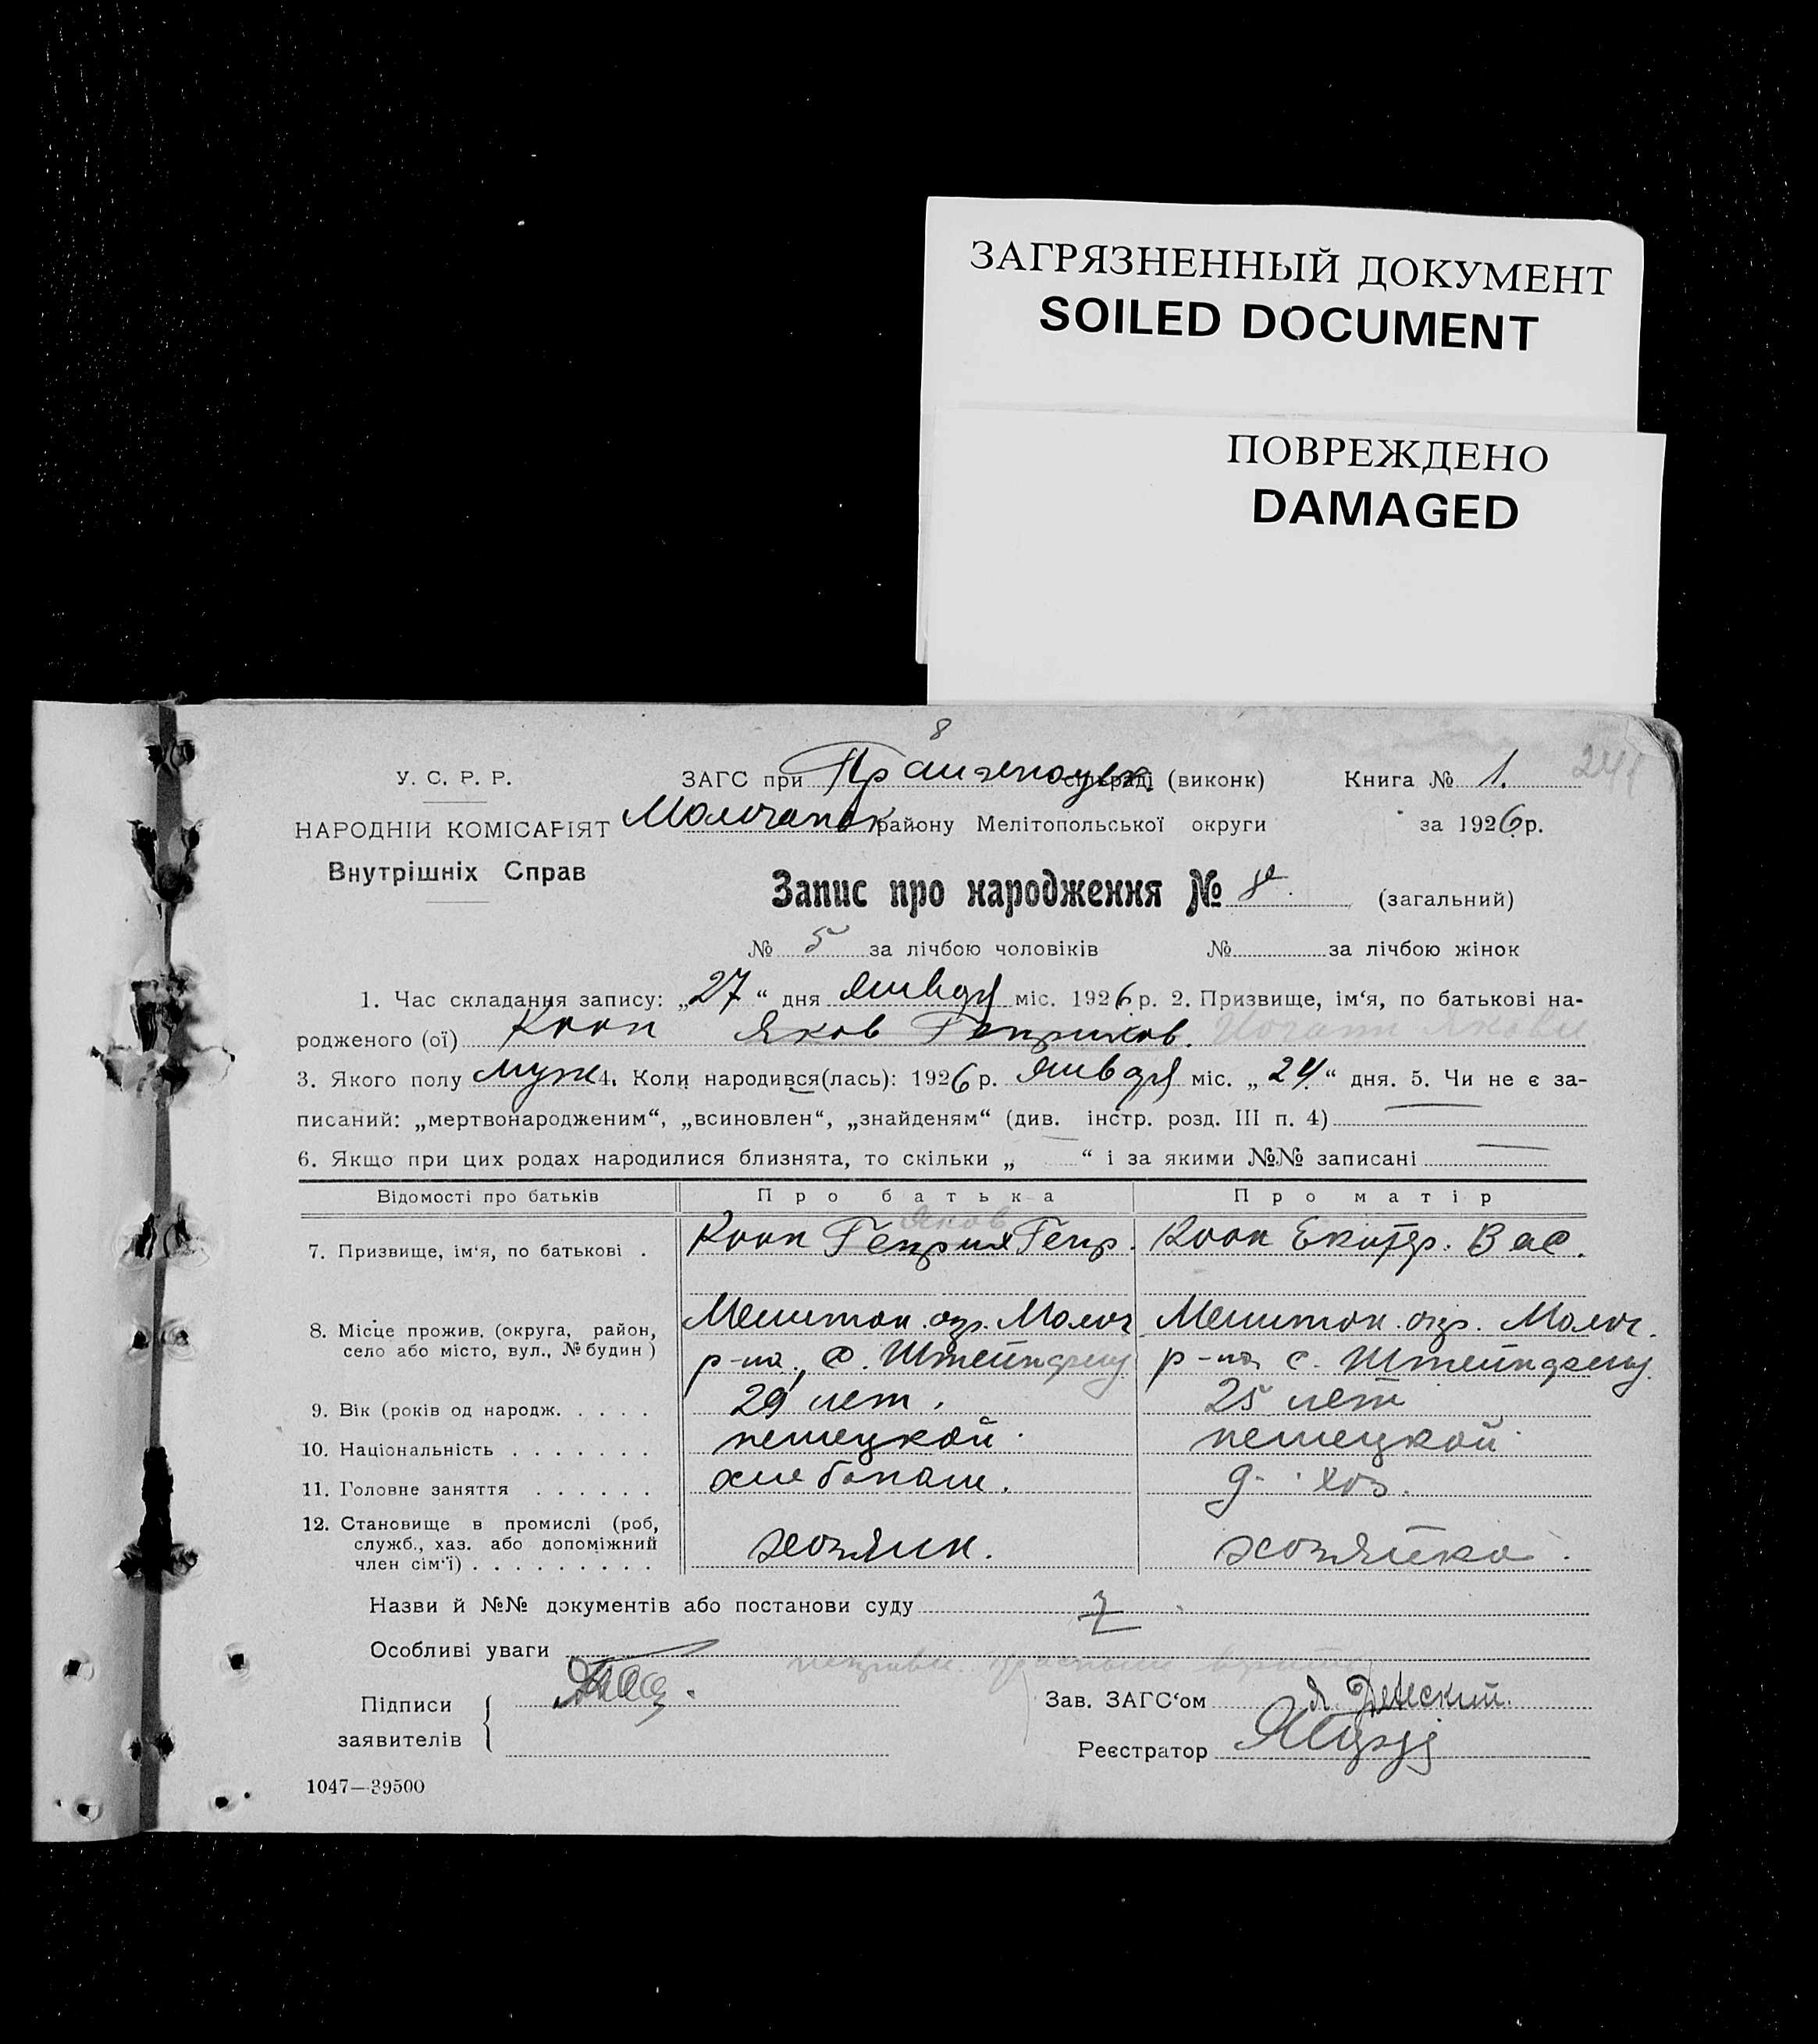 ЗАГРЯЗНЕННЫЙ ДОКУМЕНТ
SOILED DOCUMENT
ПОВРЕЖДЕНО
DAMAGED
8
У. С. Р. Р.
ЗАГС при сільраді (виконк) Книга № 1. 241
НАРОДНІЙ КОМІСАРІЯТ Молочанск району Мелітопольської округи за 1926 р.
Внутрішніх Справ
Запис про народження № 8 (загальний)
№ 5 за лічбою чоловіків № за лічбою жінок
1. Час складання запису: „27“ дня Января міс. 1926 р. 2. Призвище, ім‘я, по батькові на-
родженого (ої) Кооп Яков Генрихов. Иоганн Яковл
3. Якого полу муж 4. Коли народився(лась): 1926 р. Января міс. „24“ дня. 5. Чи не є за-
писаний: „мертвонародженим“, „всиновлен“, „знайденям“ (див. інстр. розд. III п. 4)
6. Якщо при цих родах народилися близнята, то скільки „ “ і за якими №№ записані
Відомості про батьків Про батька Про матір
Яков
7. Призвище, ім‘я, по батькові . Кооп Генрих Генр. Кооп Екатер. Вас.
8. Місце прожив. (округа, район, Мелитоп. окр. Молоч Мелитоп. окр. Молоч.
село або місто, вул., № будин) р-на, с. Штейнфельд р-на с. Штейнфельд.
9. Вік (років од народж. . . . . 29 лет. 25 лет
10. Національність . . . . . . . немецкой немецкой
11. Головне заняття . . . . . . хлебопаш. д. хоз.
12. Становище в промислі (роб,
служб., хаз. або допоміжний хозяин. хозяйка.
член сім‘ї) . . . . . . . . .
Назви й №№ документів або постанови суду
Особливі уваги
Підписи Зав. ЗАГС‘ом
заявителів
Реєстратор
1047—39500